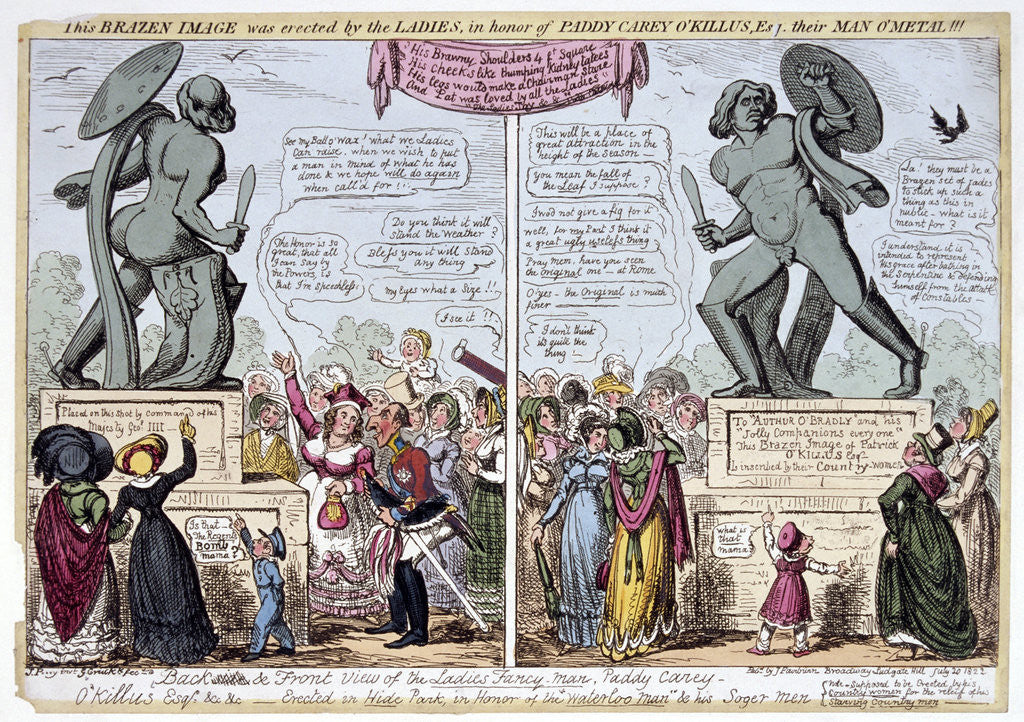 This BRAZEN IMAGE was erected by the LADIES, in honor of PADDY CAREY O'KILLUS, Esq. their MAN O'METAL!!!
His Brawny Shoulders 4 ft Square
His Cheeks like thumping Kidney tatees
His legs would make a Chairman Stare
And Pat was loved by all the Ladies"
See my Ball o' wax! what we Ladies
Can raise. when we wish to put
a man in mind of what he has
done & we hope will do again
when call'd for !!!
Do you think it will
stand the Weather ?
Bless you it will Stand
any thing
My Eyes what a Size !!
I see it !!
The Honor is so
great, that all
I can say by
the Powers, is
that I'm Speechless
Placed on this Spot by command of his
Majesty Geo. IIII
Is that
the Regents
BOMB
mama ?
This will be a place of
great attraction in the
height of the Season
you mean the fall of
the Leaf I suppose ?
I wod not give a fig for it
Well, for my Part I think it
a great ugly useless thing
Pray mem, have you seen
the Original one — at Rome
O'yes — the Original is much
finer
I don't think
its quite the
thing !
La! they must be a
Brazen set of Jades
to stick up such a
thing as this in
public — what is it
meant for ?
I understand it is
intended to represent
his grace after bathing in
the Serpentine & Defending
himself from the attack
of Constables
To "AUTHUR O'BRADLY" and his
Jolly Companions every one
This Brazen Image of Patrick
O'KILLUS Esqr.
Is inscribed by their Country-women
what is
that
mama ?
G Cruik k fec
Pubd. by J Fairburn Broadway Ludgate Hill July 20 1822
Back & Front View of the Ladies Fancy-man, Paddy Carey
O'Killus Esqr. &c &c Erected in Hide Park, in Honor of the "Waterloo Man" & his Soger men
Note — Supposed to be Erected by his
Country women for the relief of his
Starving Countrymen